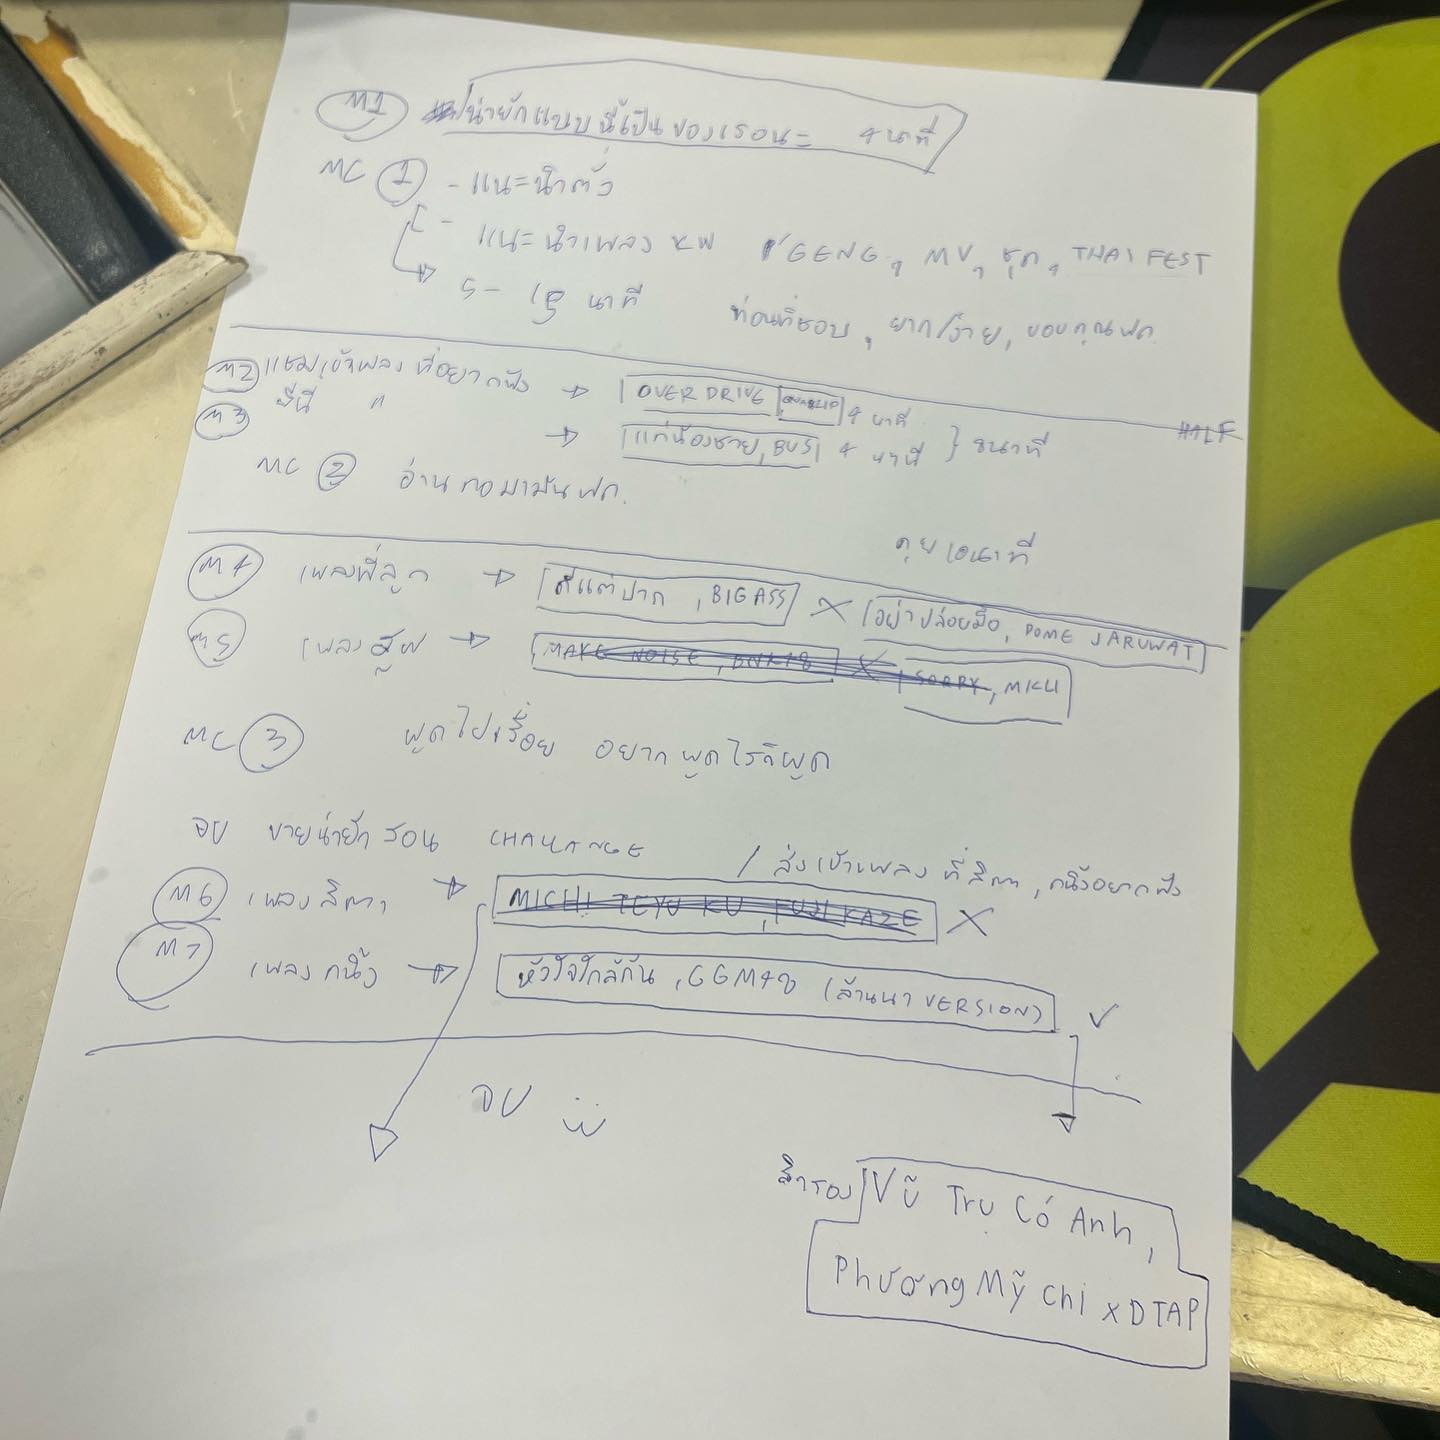 M1 น่ายักแบบนี้เป็นของเธอนะ 4 นาที
MC 1 - แนะนำตัว
- แนะนำเพลง GENG, MV, ชุด, THAI FEST
5 - นาที ท่อนที่ชอบ, ยาก/ง่าย, ขอบคุณฟค.
M2 เข้าเพลงที่อยากฟัง → OVERDRIVE 4 นาที
M3 จีนี่ " → แค่น้องชาย, BUS 4 นาที } 8นาที HALF
MC 2 อ่านคอมเม้นฟค.
คุย นาที
M4 เพลงพี่ลูก → ดีแต่ปาก, BIGASS X อย่าปล่อยมือ, DOME JARUWAT
M5 เพลง → MAKE NOISE, BNK48 X SORRY, MILLI
MC 3 พูดไปเรื่อย อยากพูดไรก็พูด
จบ ขายน่ายัก สอน CHALLANGE / ส่งเข้าเพลงที่สิตา, กนิ้งอยากฟัง
M6 เพลงสิตา → MICHI TEYU KU, FUJI KAZE X
M7 เพลงกนิ้ง → หัวใจใกล้กัน, CGM48 (ล้านนา VERSION) ✓
จบ
สำรอง Vũ Trụ Có Anh,
Phương Mỹ Chi x DTAP